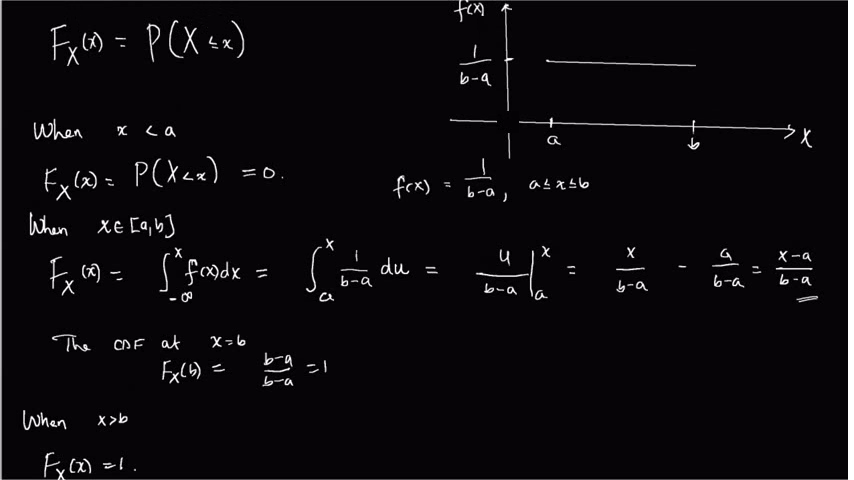 F_X(x) = P(X ≤ x)
f(x)
1/(b-a)
a
b
X
f(x) = 1/(b-a), a ≤ x ≤ b
When x < a
F_X(x) = P(X < x) = 0.
When x ∈ [a,b]
F_X(x) = ∫_{-∞}^{x} f(x)dx = ∫_{a}^{x} 1/(b-a) du = u/(b-a) |_{a}^{x} = x/(b-a) - a/(b-a) = (x-a)/(b-a)
The CDF at x=b
F_X(b) = (b-a)/(b-a) = 1
When x>b
F_X(x) = 1.